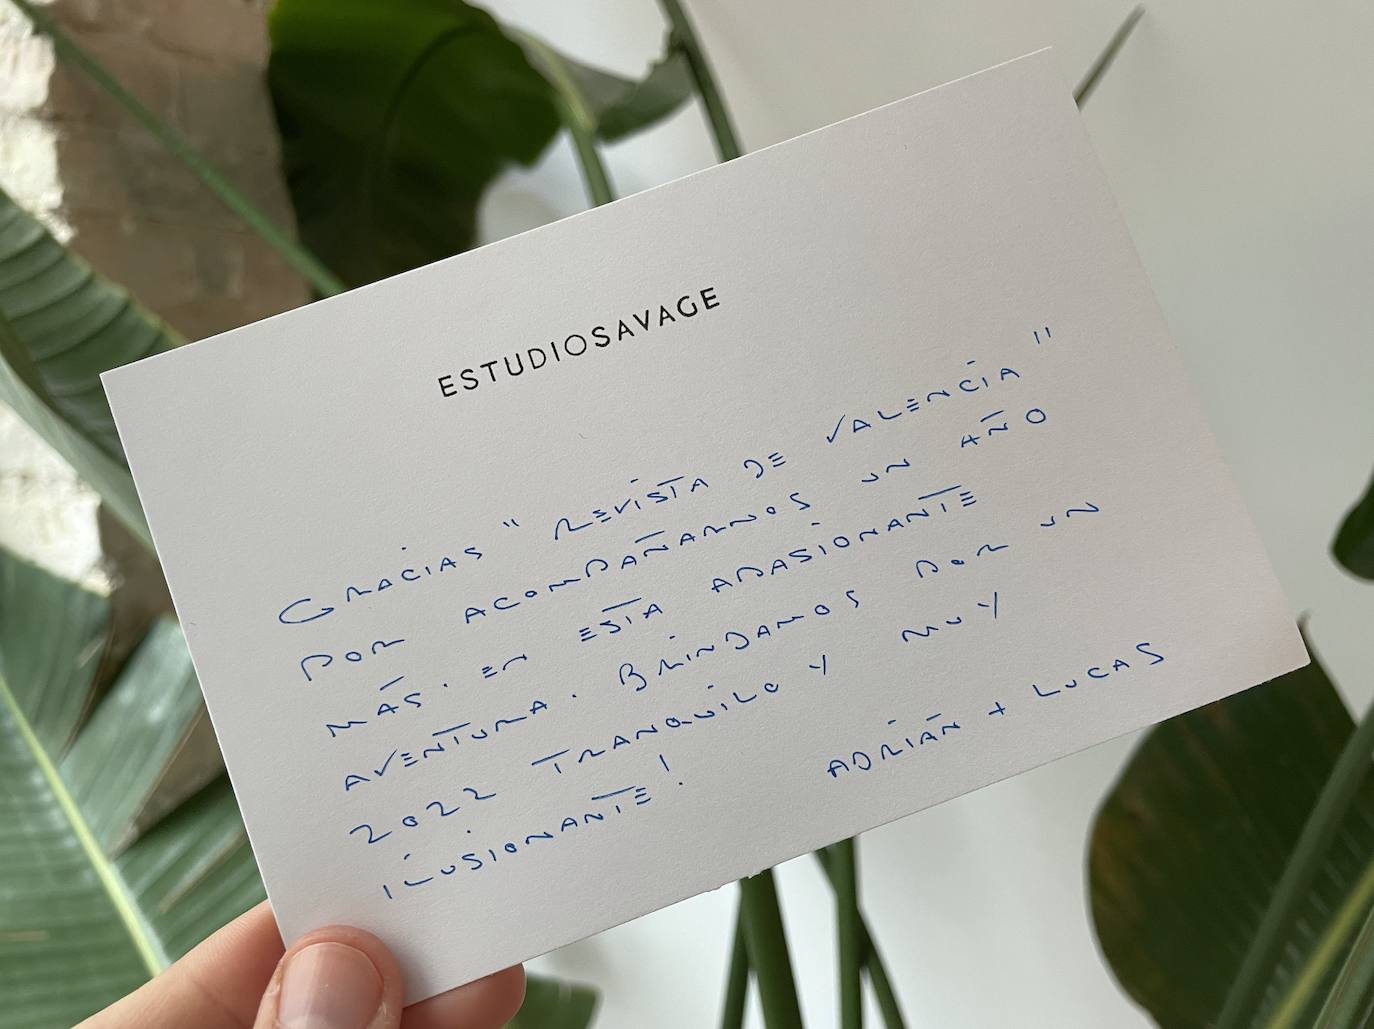 ESTUDIOSAVAGE
GRACIAS "REVISTA DE VALENCIA"
POR ACOMPAÑARNOS UN AÑO
MÁS. EN ESTA APASIONANTE
AVENTURA. BRINDAMOS POR UN
2022 TRANQUILO Y MUY
ILUSIONANTE!
ADRIÁN + LUCAS